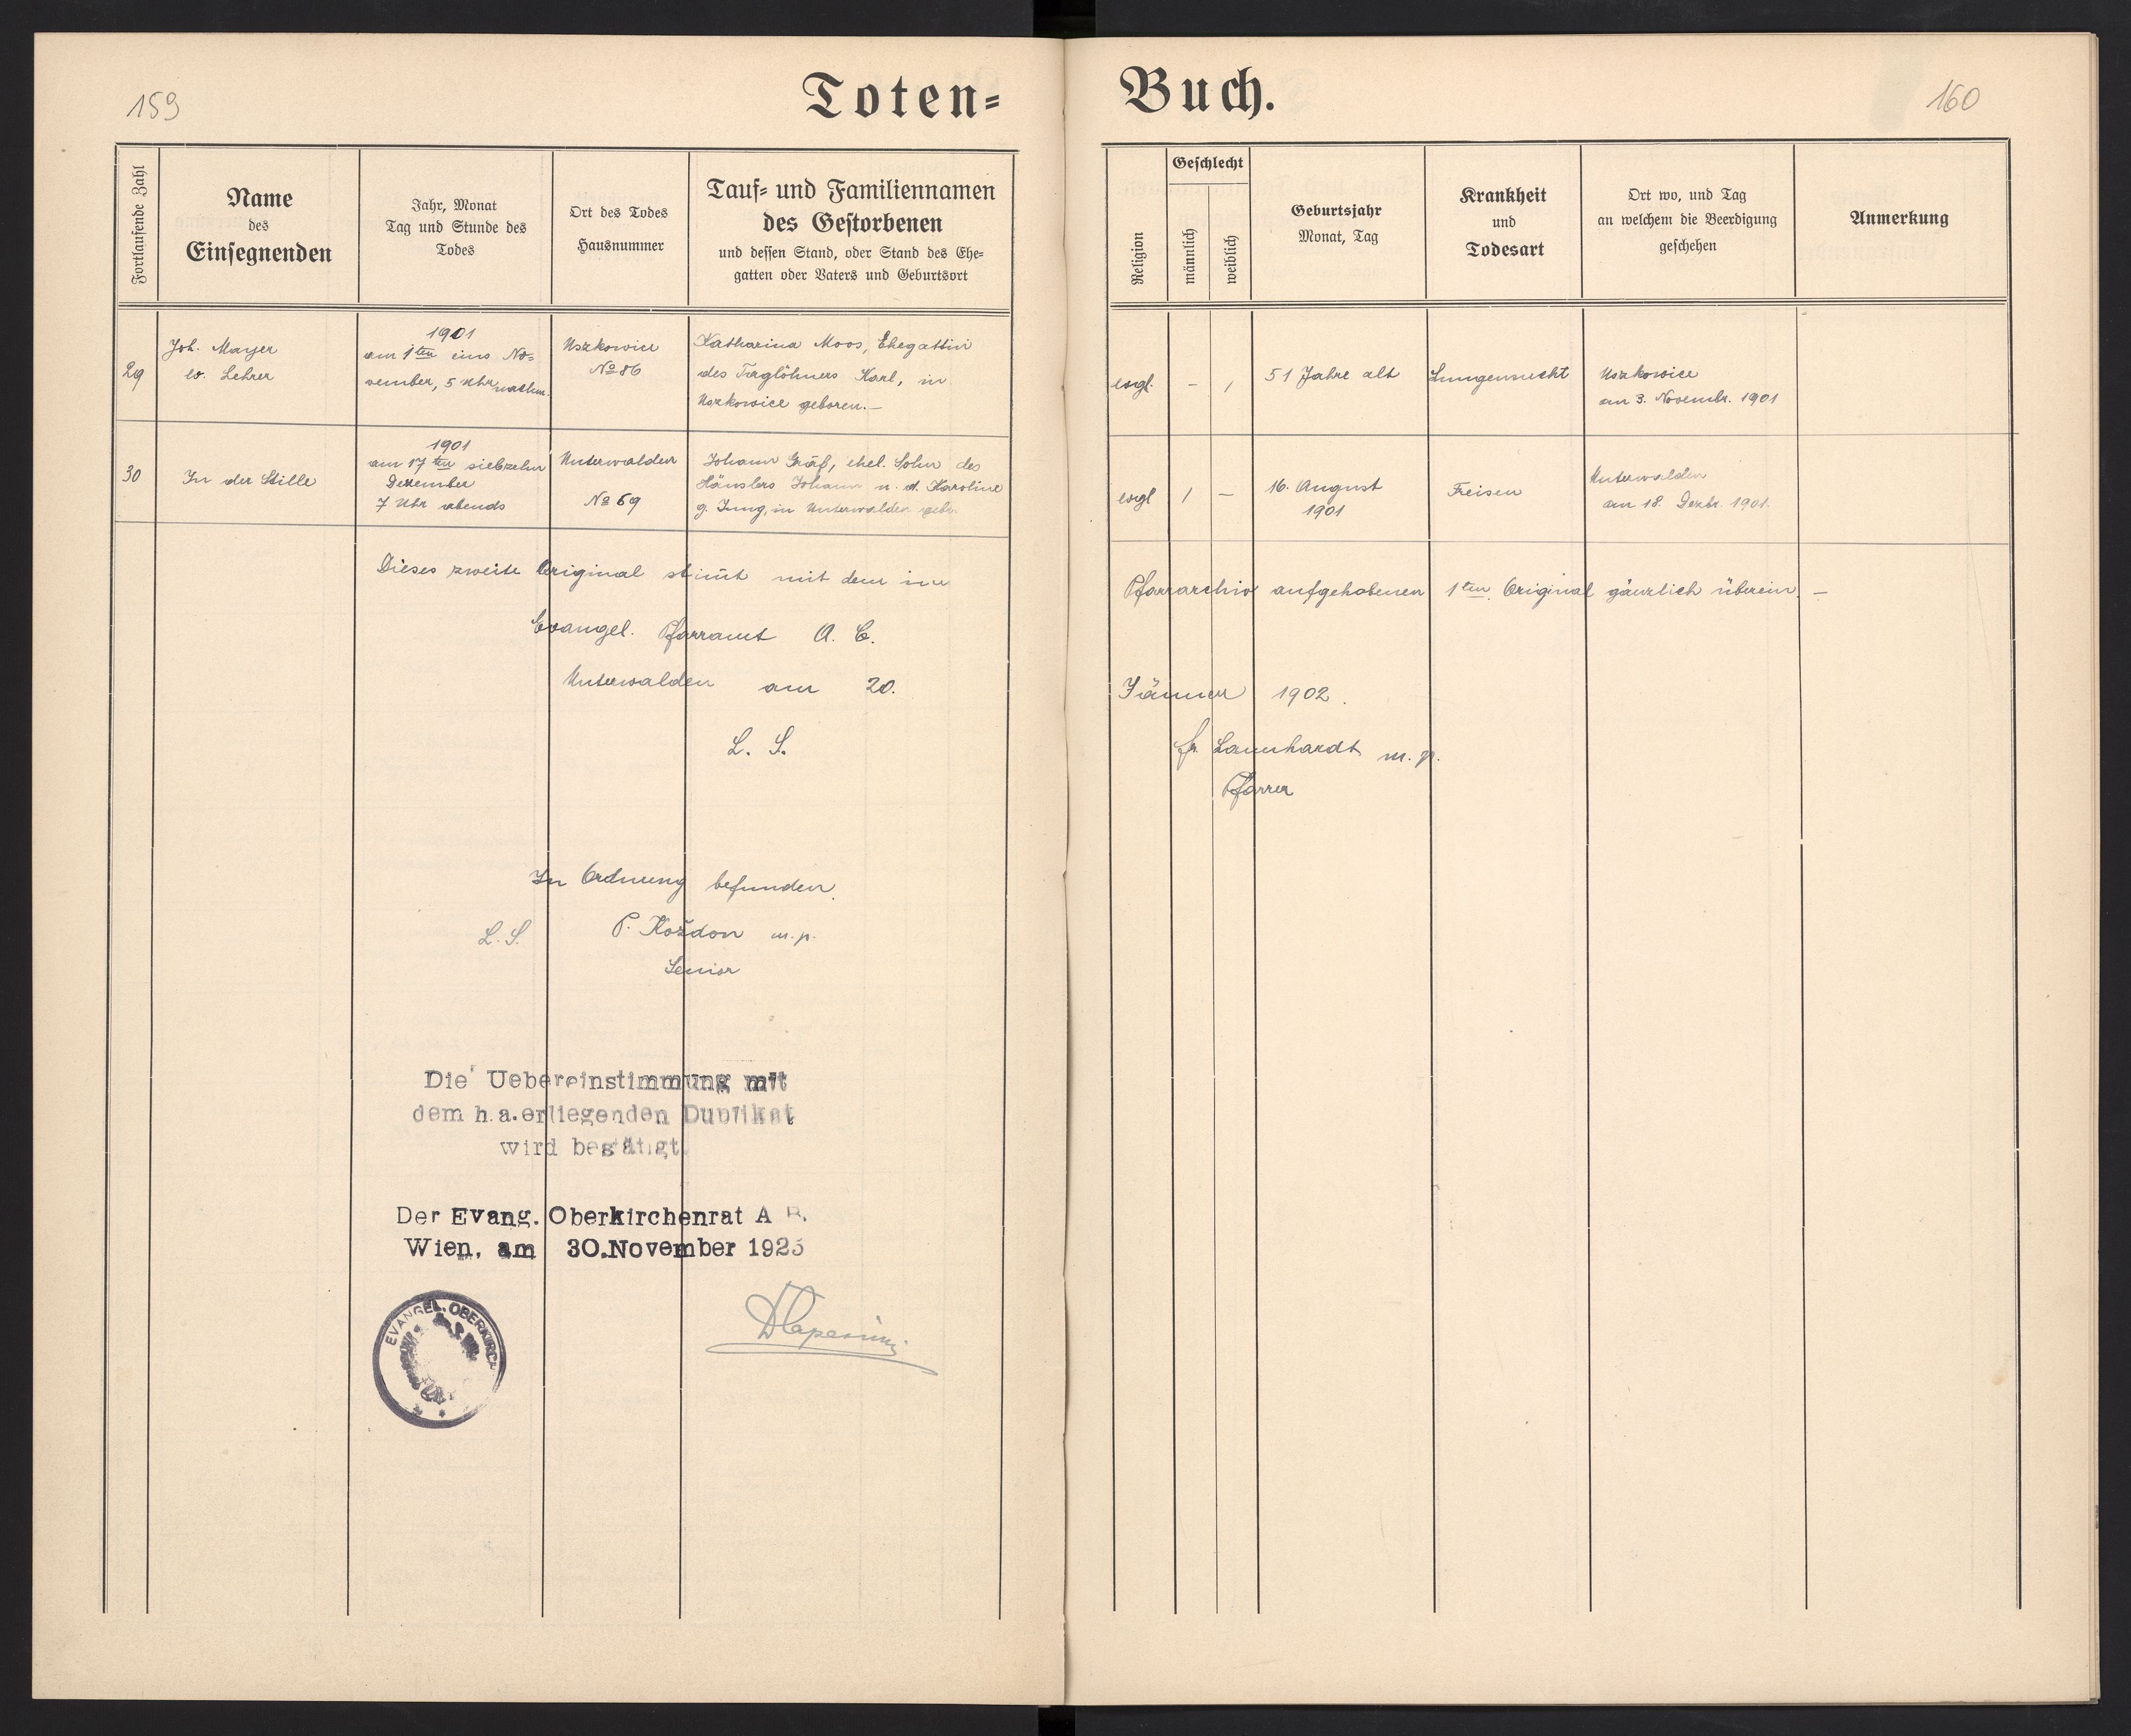 159
Toten=
Fortlaufende Zahl
Name
des
Einsegnenden
Jahr, Monat
Tag und Stunde des
Todes
Ort des Todes
Hausnummer
Tauf= und Familiennamen
des Gestorbenen
und dessen Stand, oder Stand des Ehe=
gatten oder Vaters und Geburtsort
29
Joh. Mayer
ev. Lehrer
1901
am 1ten eins No=
vember, 5 Uhr nachm.
Uszkowice
No 86
Katharina Moos, Ehegattin
des Taglöhners Karl, in
Uszkowice geboren.—
30
In der Stille
1901
am 17ten siebzehn
Dezember
7 Uhr abends
Unterwalden
No 69
Johann Gräf, ehel. Sohn des
Häuslers Johann u. d. Karoline
g. Jung, in Unterwalden geb.
Dieses zweite Original stimt mit dem im
Evangel. Pfarramt A. C.
Unterwalden am 20.
L. S.
In Ordnung befunden.
L. S. P. Koždon m. p.
Senior
Die Uebereinstimmung mit
dem h.a.erliegenden Duplikat
wird bestätigt.
Der Evang. Oberkirchenrat A B.
Wien, am 30.November 1925
EVANGEL. OBERKIRCH
160
Buch.
Religion
Geschlecht
männlich
weiblich
Geburtsjahr
Monat, Tag
Krankheit
und
Todesart
Ort wo, und Tag
an welchem die Beerdigung
geschehen
Anmerkung
evgl.
–
1
51 Jahre alt
Lungensucht
Uszkowice
am 3. Novembr. 1901
evgl
1
–
16. August
1901
Freisen
Unterwalden
am 18. Dezbr. 1901.
Pfarrarchiv aufgehobenen 1ten Original gänzlich überein. —
Jänner 1902.
Fr. Launhardt m. p.
Pfarrer